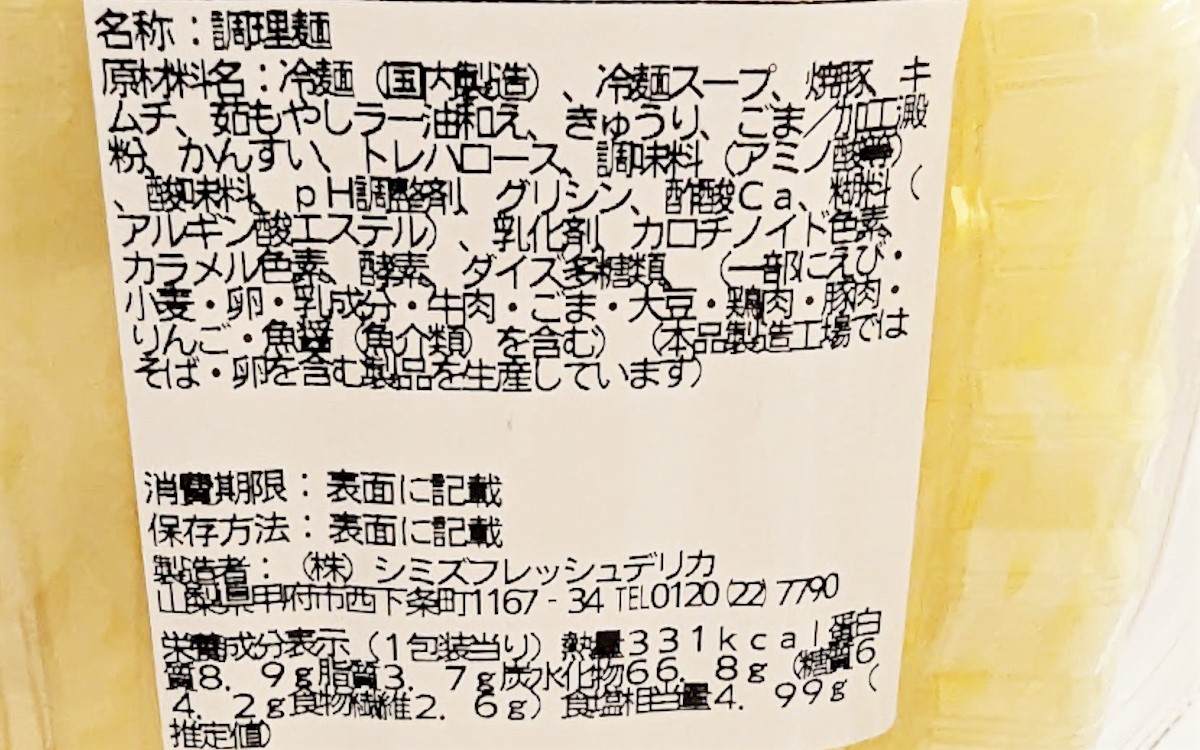 名称：調理麺
原材料名：冷麺（国内製造）、冷麺スープ、焼豚、キ
ムチ、茹もやしラー油和え、きゅうり、ごま／加工澱
粉、かんすい、トレハロース、調味料（アミノ酸等）
、酸味料、ｐＨ調整剤、グリシン、酢酸Ｃａ、糊料（
アルギン酸エステル）、乳化剤、カロチノイド色素、
カラメル色素、酵素、ダイズ多糖類、（一部にえび・
小麦・卵・乳成分・牛肉・ごま・大豆・鶏肉・豚肉・
りんご・魚醤（魚介類）を含む）（本品製造工場では
そば・卵を含む製品を生産しています）
消費期限：表面に記載
保存方法：表面に記載
製造者：（株）シミズフレッシュデリカ
山梨県甲府市西下条町1167-34 TEL0120(22)7790
栄養成分表示（1包装当り）熱量331kcal蛋白
質8.9g脂質3.7g炭水化物66.8g（糖質6
4.2g食物繊維2.6g）食塩相当量4.99g（
推定値）